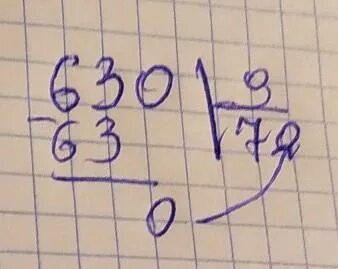 630 | 9
− 63 | 70
0